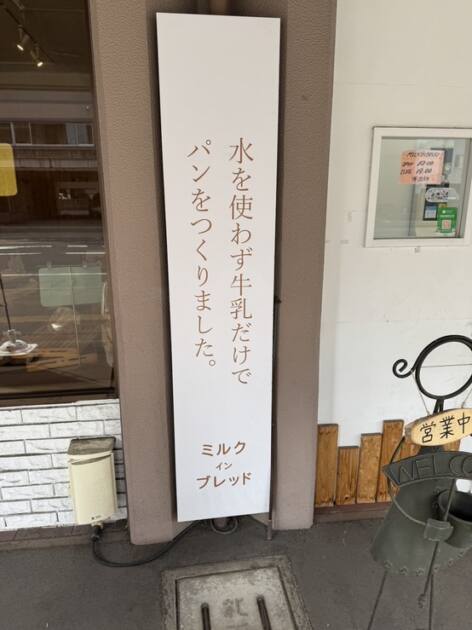 水を使わず牛乳だけで
パンをつくりました。
ミルク
イン
ブレッド
営業中
WELCO